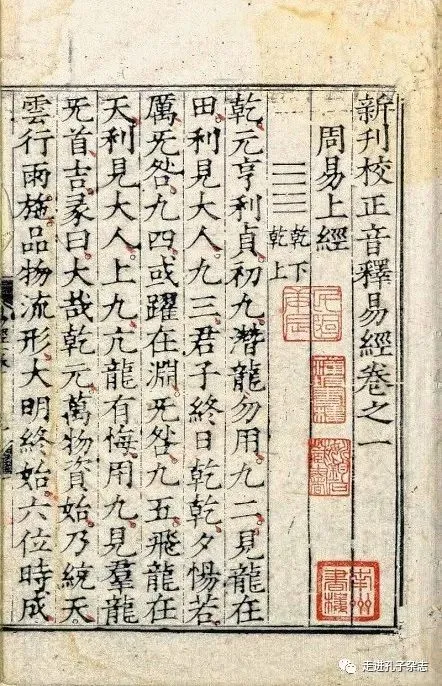 新刊校正音釋易經卷之一
周易上經
乾下
乾上
乾元亨利貞初九潛龍勿用九二見龍在
田利見大人九三君子終日乾乾夕惕若
厲旡咎九四或躍在淵旡咎九五飛龍在
天利見大人上九亢龍有悔用九見羣龍
旡首吉彖曰大哉乾元萬物資始乃統天
雲行雨施品物流形大明終始六位時成
南州書樓
走进孔子杂志